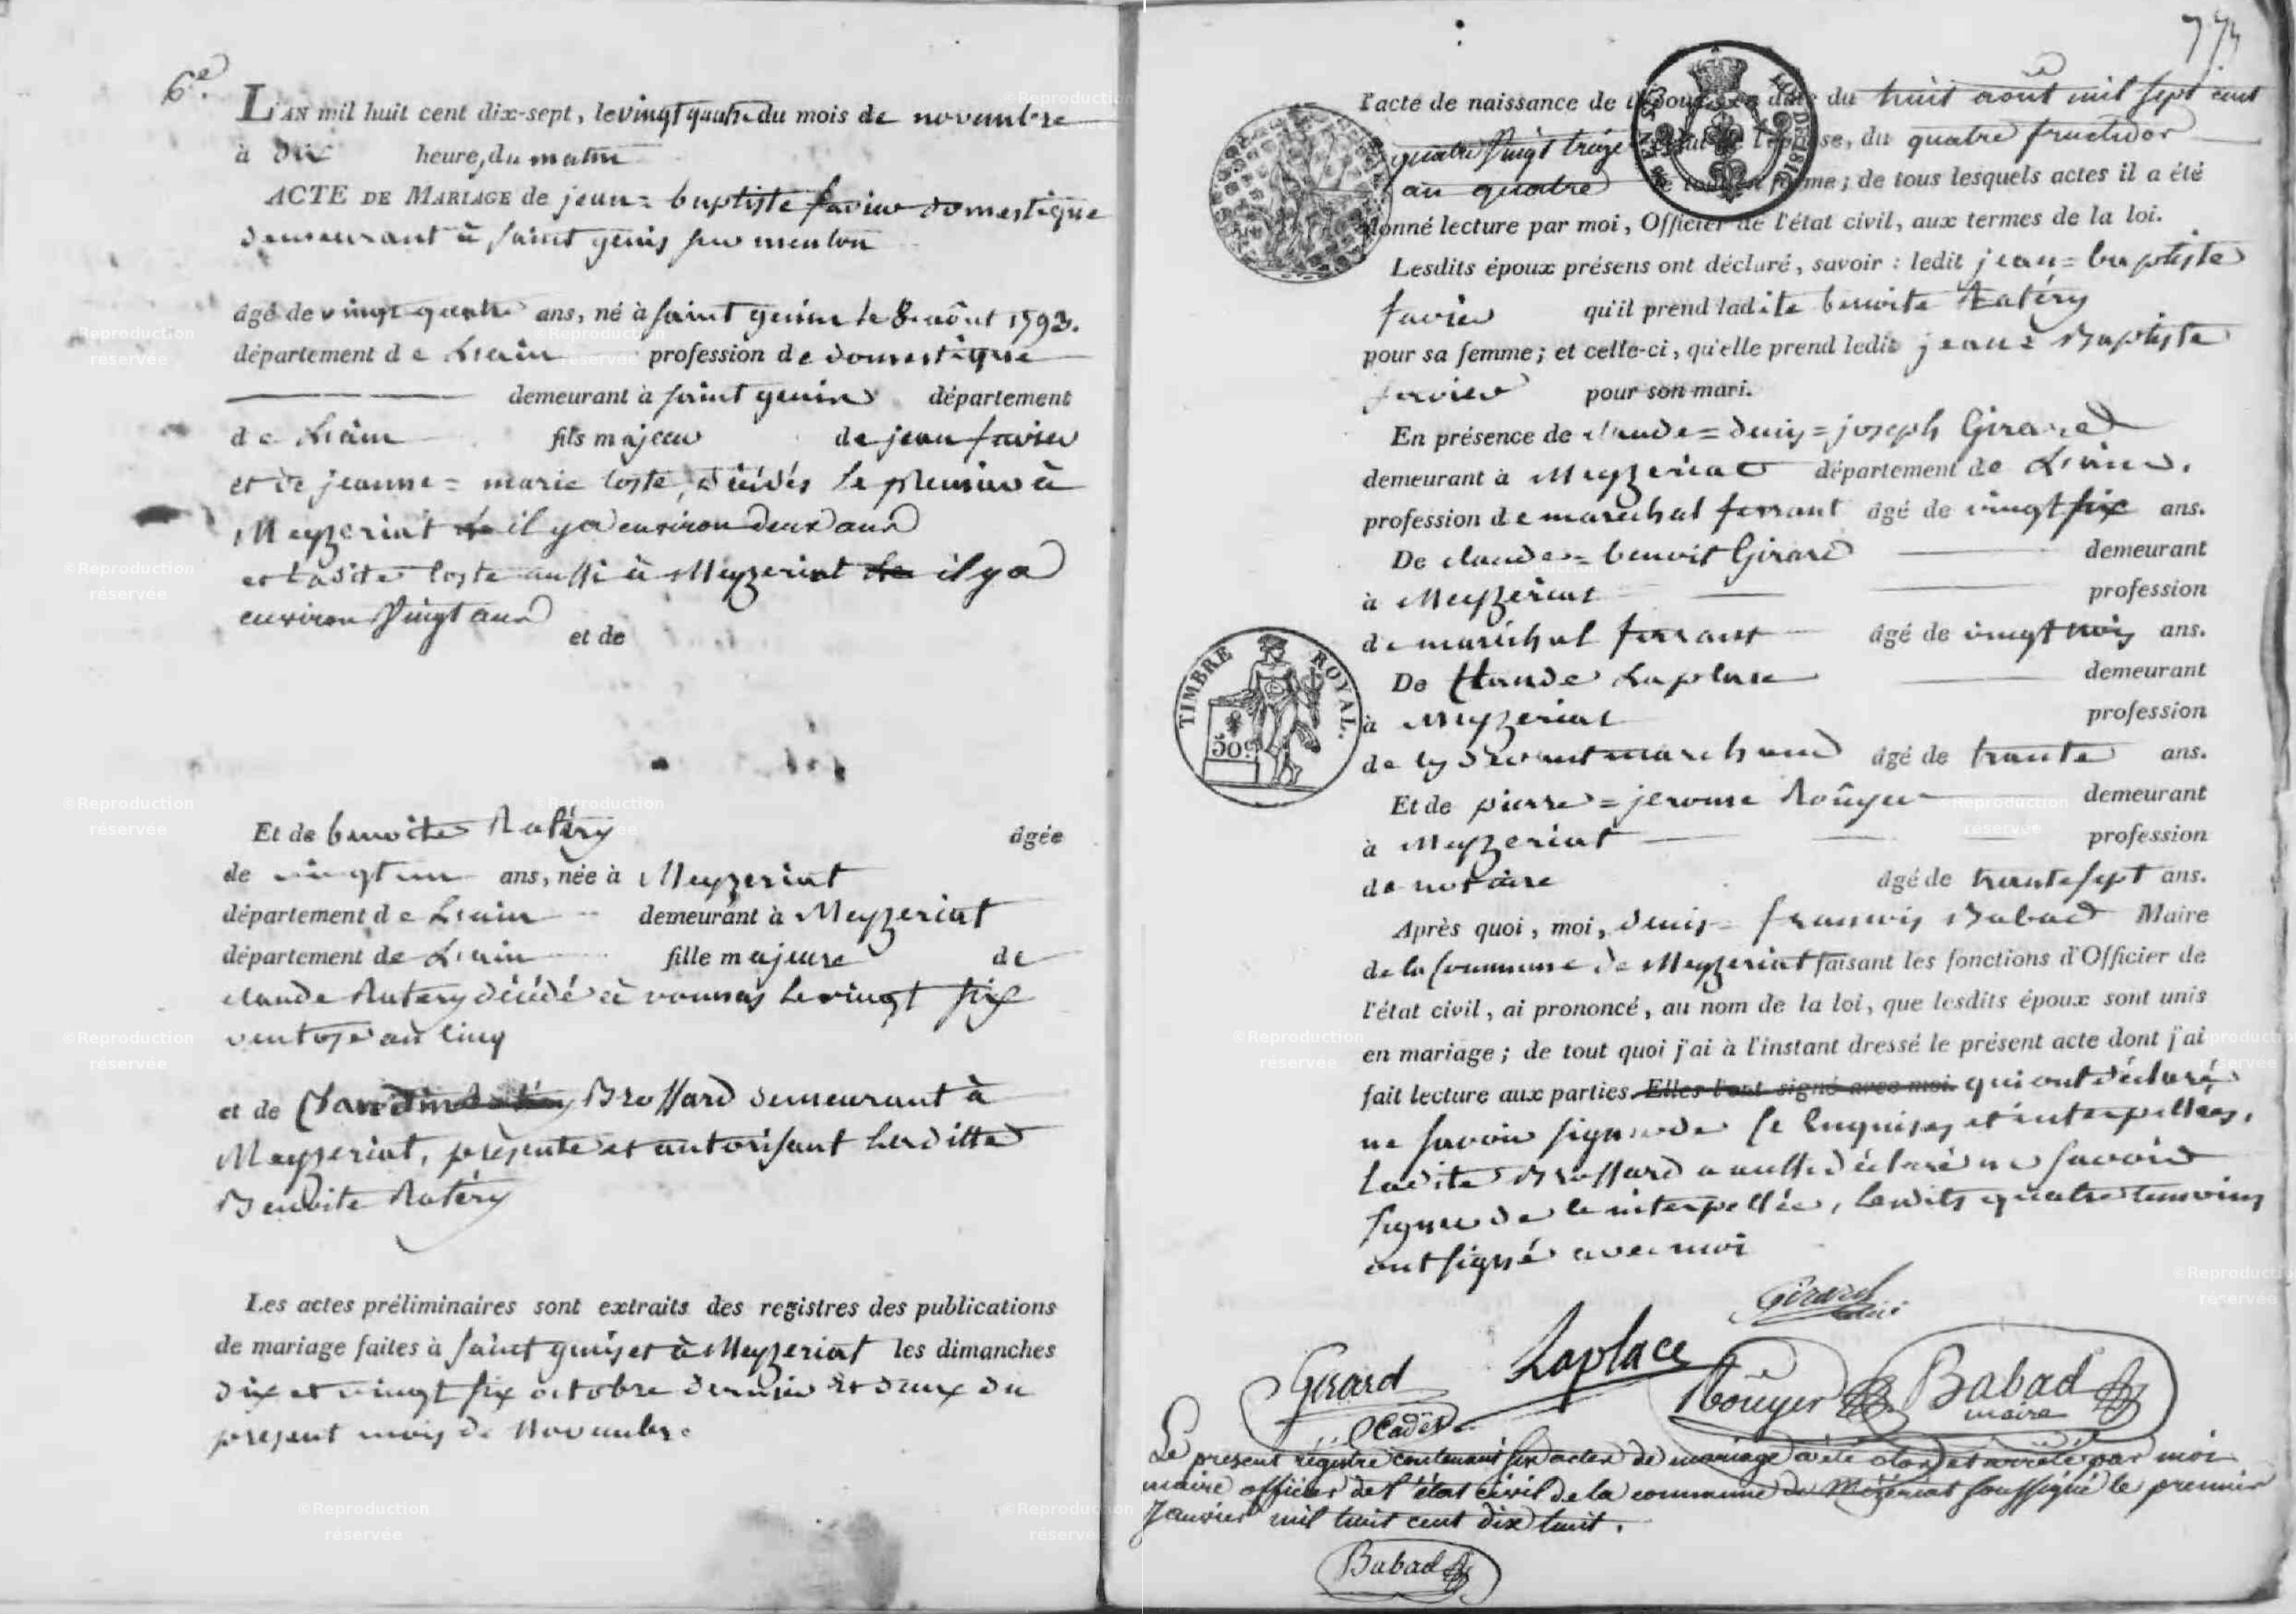 6e.
L'AN mil huit cent dix-sept, le vingt quatre du mois de novembre
à dix heure, du matin
ACTE DE MARIAGE de jean = baptiste favier domestique
demeurant à saint genis sur menton
âgé de vingt quatre ans, né à saint genis le 8 août 1793.
département de L'ain profession de domestique
demeurant à saint genis département
de L'ain fils majeur de jean favier
et de jeanne = marie loste, décédés le premier à
Meyzeriat il y a environ deux ans
et ladite loste aussi à Meyzeriat il y a
environ vingt ans
et de
Et de benoite Ratéry âgée
de vingt un ans, née à Meyzeriat
département de L'ain demeurant à Meyzeriat
département de L'ain fille majeure de
claude Ratery décédé à vonnas le vingt six
ventose an cinq
et de Claudine Brossard demeurant à
Meyzeriat, présente et autorisant laditte
Benoite Ratéry
Les actes préliminaires sont extraits des registres des publications
de mariage faites à saint genis et à Meyzeriat les dimanches
dix et vingt six octobre dernier et deux du
présent mois de Novembre
l'acte de naissance de l'époux en date du huit août mil sept cent
quatre vingt treize celui de l'épouse, du quatre fructidor
an quatre le tout en forme; de tous lesquels actes il a été
donné lecture par moi, Officier de l'état civil, aux termes de la loi.
Lesdits époux présens ont déclaré, savoir: ledit jean = baptiste
favier qu'il prend ladite benoite Ratéry
pour sa femme; et celle-ci, qu'elle prend ledit jean = Baptiste
favier pour son mari.
En présence de claude = denis = joseph Girard
demeurant à Meyzeriat département de L'ain.
profession de maréchal ferrant âgé de vingt six ans.
De claude = benoit Girard demeurant
à Meyzeriat profession
de maréchal ferrant âgé de vingt trois ans.
De Claude Laplace demeurant
à Meyzeriat profession
de marchand âgé de trante ans.
Et de pierre = jerome Roûyer demeurant
à Meyzeriat profession
de notaire âgé de trante sept ans.
Après quoi, moi, denis = francois Babad Maire
de la Commune de Meyzeriat faisant les fonctions d'Officier de
l'état civil, ai prononcé, au nom de la loi, que lesdits époux sont unis
en mariage; de tout quoi j'ai à l'instant dressé le présent acte dont j'ai
fait lecture aux parties. Elles l'ont signé avec moi. qui ont déclaré
ne savoir signer de ce enquises et interpellées,
Ladite Brossard a aussi déclaré ne savoir
signer de ce interpellée, lesdits quatre temoins
ont signé avec moi
Girard
Girard
Cadet
Laplace
Roûyer
Babad
maire
Le present régistre contenant six actes de mariage a été clos et arrêté par moi
maire officier de l'état civil de la commune de Mézériat soussigné le premier
Janvier mil huit cent dix huit.
Babad
TIMBRE ROYAL.
50c
©Reproduction
réservée